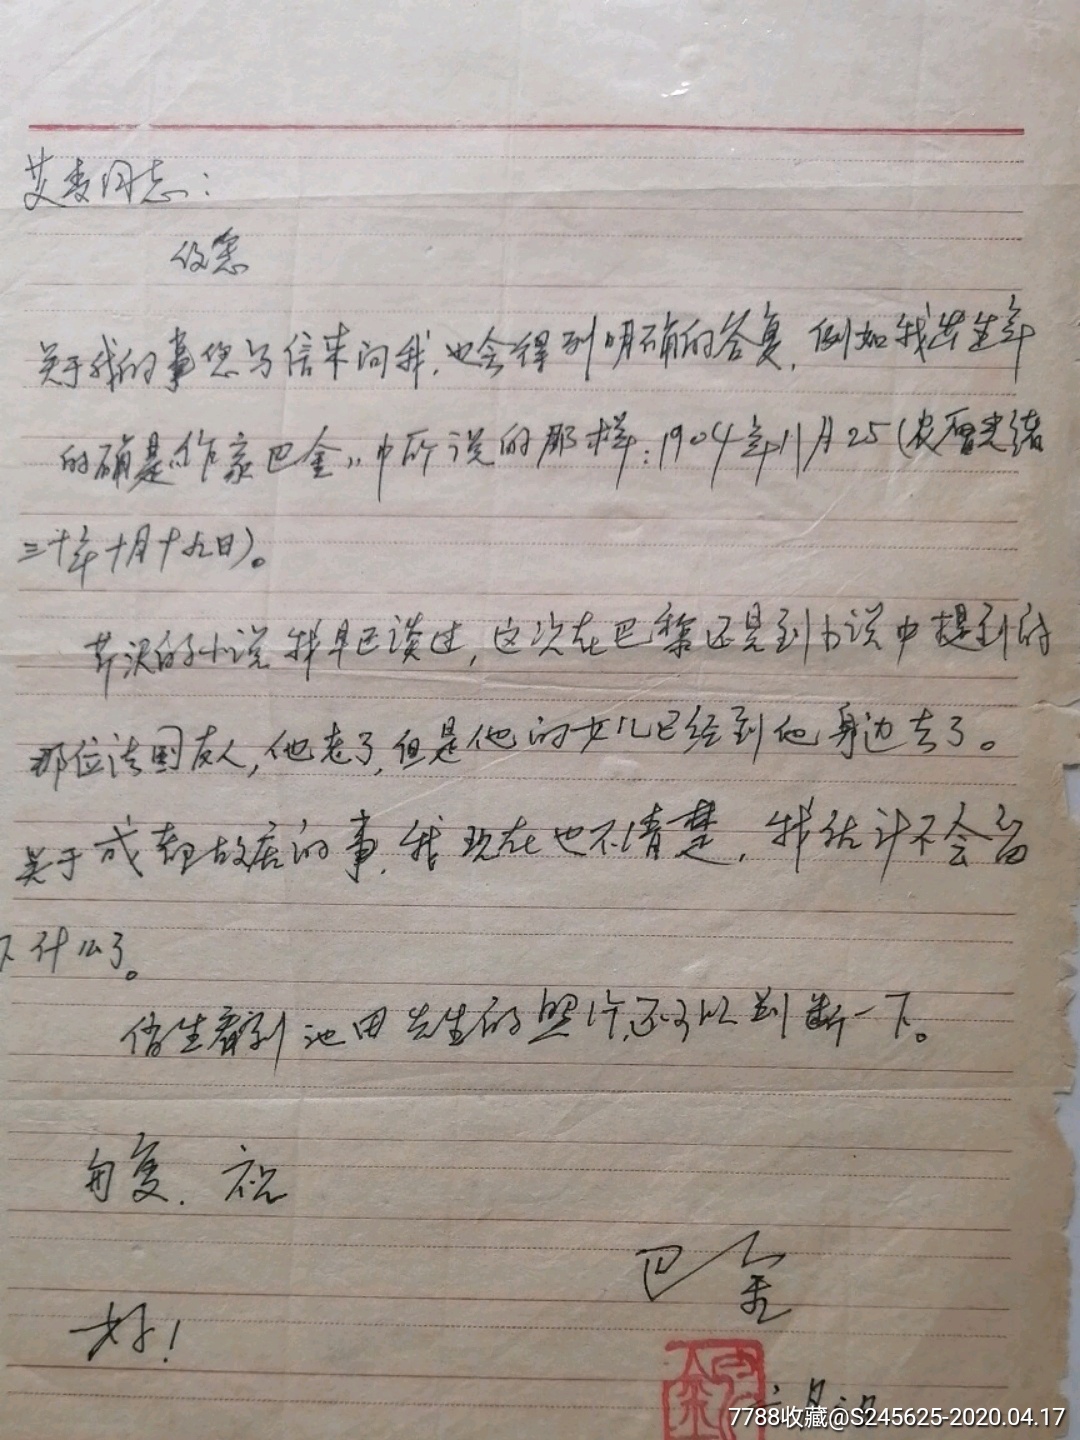 艾 同志：
关于我的事您写信来问我,也会得到明确的答复,例如我出生年
的确是《作家巴金》中所说的那样:1904年11月25(农历光绪
三十年十月十九日)。
的小说我早已谈过,这次在巴黎还见到小说中提到的
那位法国友人,他老了,但是他的女儿已经到他身边去了。
关于成都故居的事,我现在也不清楚,我估计不会留
下什么了。
看到池田先生的照片,还可以判断一下。
匆复. 祝
巴金
好!
月
7788收藏@S245625-2020.04.17